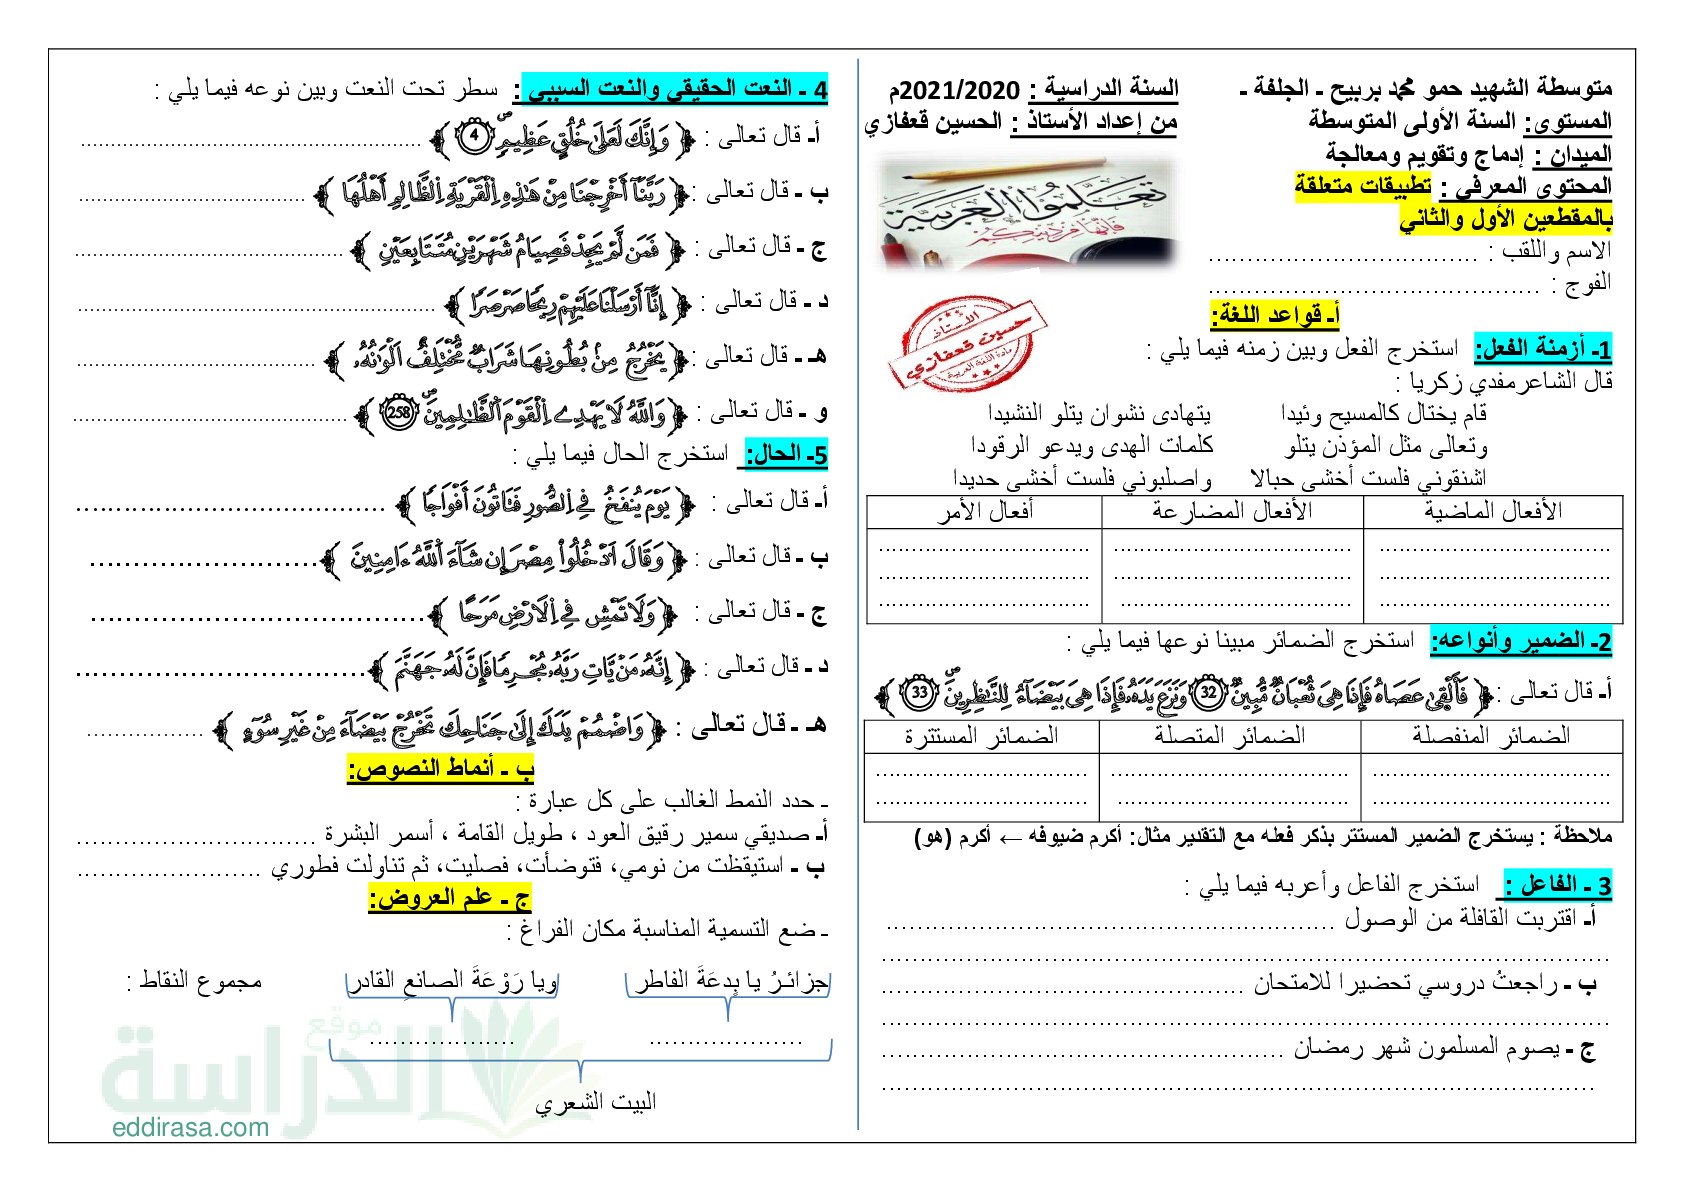 متوسطة الشهيد حمو محمد بربيح ـ الجلفة ـ
السنة الدراسية : 2021/2020م
المستوى: السنة الأولى المتوسطة
من إعداد الأستاذ : الحسين قعفازي
الميدان : إدماج وتقويم ومعالجة
المحتوى المعرفي : تطبيقات متعلقة
بالمقطعين الأول والثاني
الاسم واللقب : ..................................
الفوج : ..........................................
تعلموا العربية
فإنها من دينكم
الأستاذ
حسين قعفازي
مادة اللغة العربية
أـ قواعد اللغة:
1- أزمنة الفعل: استخرج الفعل وبين زمنه فيما يلي :
قال الشاعرمفدي زكريا :
قام يختال كالمسيح وئيدا يتهادى نشوان يتلو النشيدا
وتعالى مثل المؤذن يتلو كلمات الهدى ويدعو الرقودا
اشنقوني فلست أخشى حبالا واصلبوني فلست أخشى حديدا
الأفعال الماضية الأفعال المضارعة أفعال الأمر
.............................. ............................... ............................
.............................. ............................... ............................
.............................. .............................. ............................
2- الضمير وأنواعه: استخرج الضمائر مبينا نوعها فيما يلي :
أـ قال تعالى :﴿ فَأَلْقَىٰ عَصَاهُ فَإِذَا هِىَ ثُعْبَانٌ مُّبِينٌ 32 وَنَزَعَ يَدَهُۥ فَإِذَا هِىَ بَيْضَآءُ لِلنَّٰظِرِينَۖ 33 ﴾
الضمائر المنفصلة الضمائر المتصلة الضمائر المستترة
............................... ............................... ............................
............................... .............................. ............................
ملاحظة : يستخرج الضمير المستتر بذكر فعله مع التقدير مثال: أكرم ضيوفه ← أكرم (هو)
3 ـ الفاعل : استخرج الفاعل وأعربه فيما يلي :
أـ اقتربت القافلة من الوصول ..........................................................
...............................................................................................
ب ـ راجعتُ دروسي تحضيرا للامتحان ....................................
...............................................................................................
ج ـ يصوم المسلمون شهر رمضان ..................................................
.............................................................................................
4 ـ النعت الحقيقي والنعت السببي : سطر تحت النعت وبين نوعه فيما يلي :
أـ قال تعالى : ﴿ وَإِنَّكَ لَعَلَىٰ خُلُقٍ عَظِيمٍۖ 4 ﴾ ..............................................
ب ـ قال تعالى :﴿ رَبَّنَآ أَخْرِجْنَا مِنْ هَٰذِهِ اِلْقَرْيَةِ اِلظَّالِمِ أَهْلُهَا ﴾ ..............................
ج ـ قال تعالى : ﴿ فَمَن لَّمْ يَجِدْ فَصِيَامُ شَهْرَيْنِ مُتَتَابِعَيْنِ ﴾ ...................................
د ـ قال تعالى : ﴿ إِنَّآ أَرْسَلْنَا عَلَيْهِمْ رِيحًا صَرْصَرًا ﴾ ...............................................
هـ ـ قال تعالى :﴿ يَخْرُجُ مِنۢ بُطُونِهَا شَرَابٌ مُّخْتَلِفٌ اَلْوَٰنُهُۥ ﴾ ...................................
و ـ قال تعالى : ﴿ وَاللَّهُ لَا يَهْدِے اِلْقَوْمَ اَلظَّٰلِمِينَۖ 258 ﴾ ....................................
5- الحال: استخرج الحال فيما يلي :
أـ قال تعالى : ﴿ يَوْمَ يُنفَخُ فِے اِلصُّورِ فَتَاتُونَ أَفْوَاجًا ﴾ ......................................
ب ـ قال تعالى : ﴿ وَقَالَ اَدْخُلُواْ مِصْرَ إِن شَآءَ اَللَّهُ ءَامِنِينَ ﴾ ..........................
ج ـ قال تعالى : ﴿ وَلَا تَمْشِ فِے اِلَارْضِ مَرَحًا ﴾ ......................................
د ـ قال تعالى : ﴿ إِنَّهُۥ مَنْ يَّاتِ رَبَّهُۥ مُجْرِمًا فَإِنَّ لَهُۥ جَهَنَّمَ ﴾ ..................................
هـ ـ قال تعالى : ﴿ وَاضْمُمْ يَدَكَ إِلَىٰ جَنَاحِكَ تَخْرُجْ بَيْضَآءَ مِنْ غَيْرِ سُوٓءٍ ﴾ ..................
ب ـ أنماط النصوص:
ـ حدد النمط الغالب على كل عبارة :
أـ صديقي سمير رقيق العود ، طويل القامة ، أسمر البشرة ...............................
ب ـ استيقظت من نومي، فتوضأت، فصليت، ثم تناولت فطوري ........................
ج ـ علم العروض:
ـ ضع التسمية المناسبة مكان الفراغ :
جزائـرُ يا بِدعَةَ الفاطر ويا رَوْعَةَ الصانعِ القادر مجموع النقاط :
.................... ...................
البيت الشعري
موقع
الدراسة
eddirasa.com